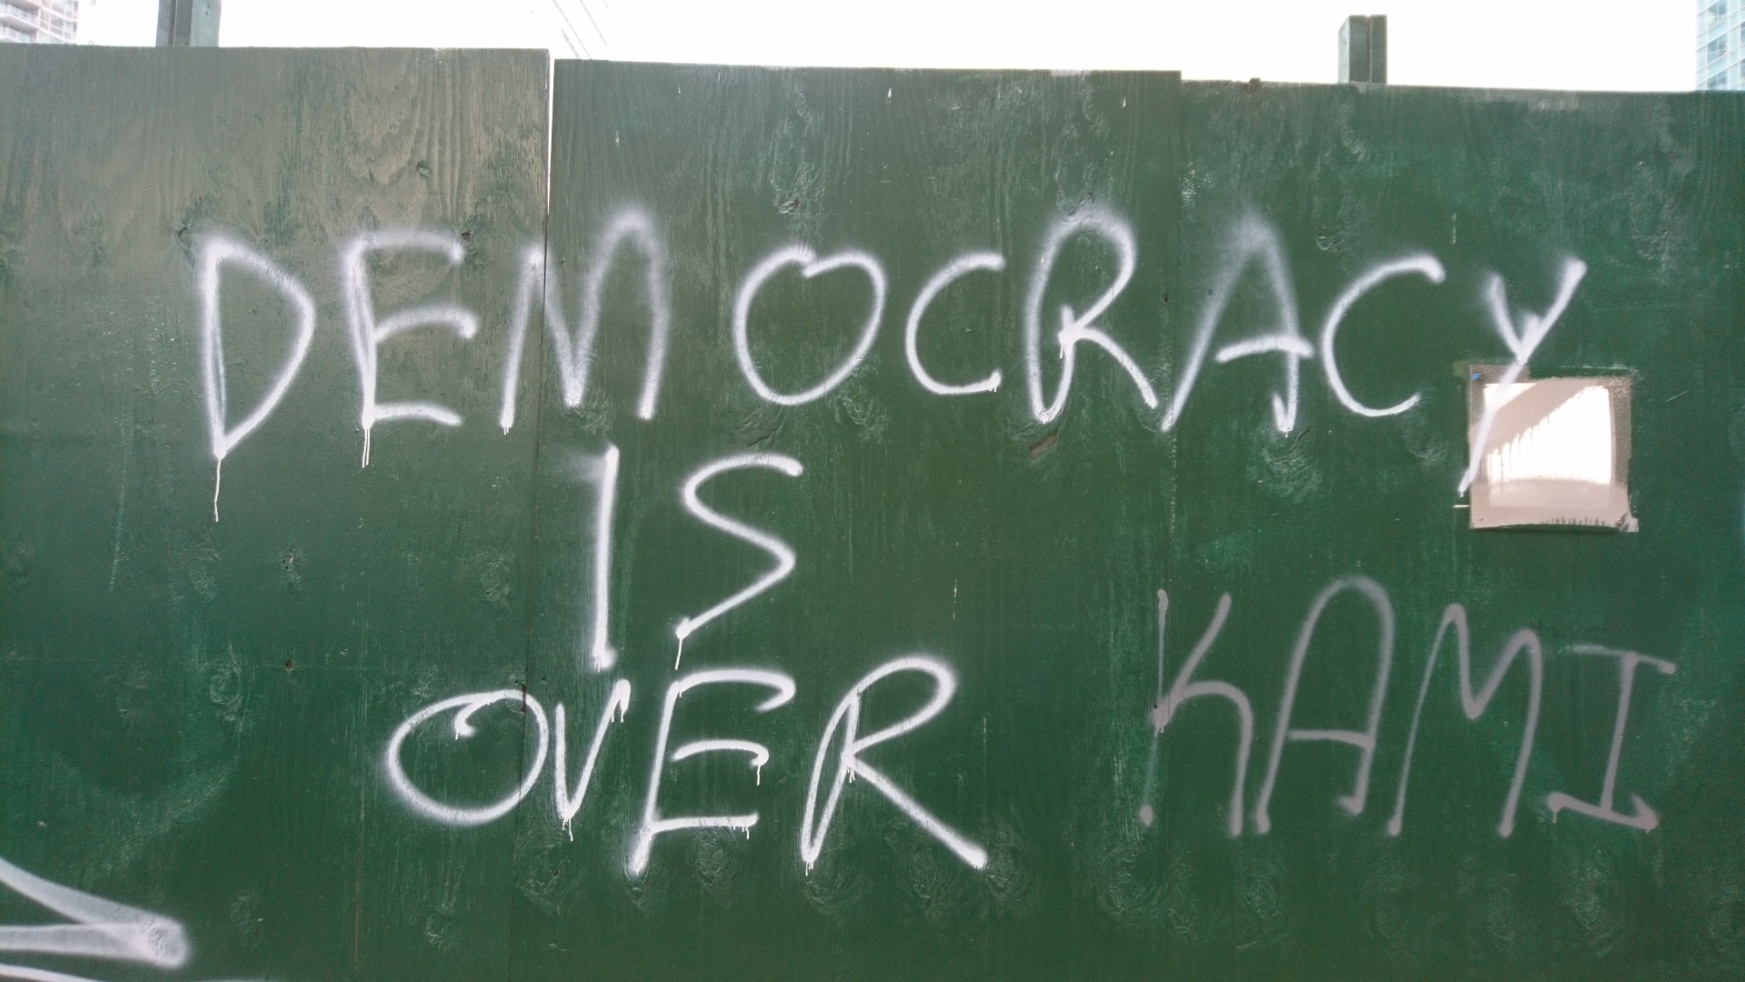 DEMOCRACY
IS
OVER
KAMI